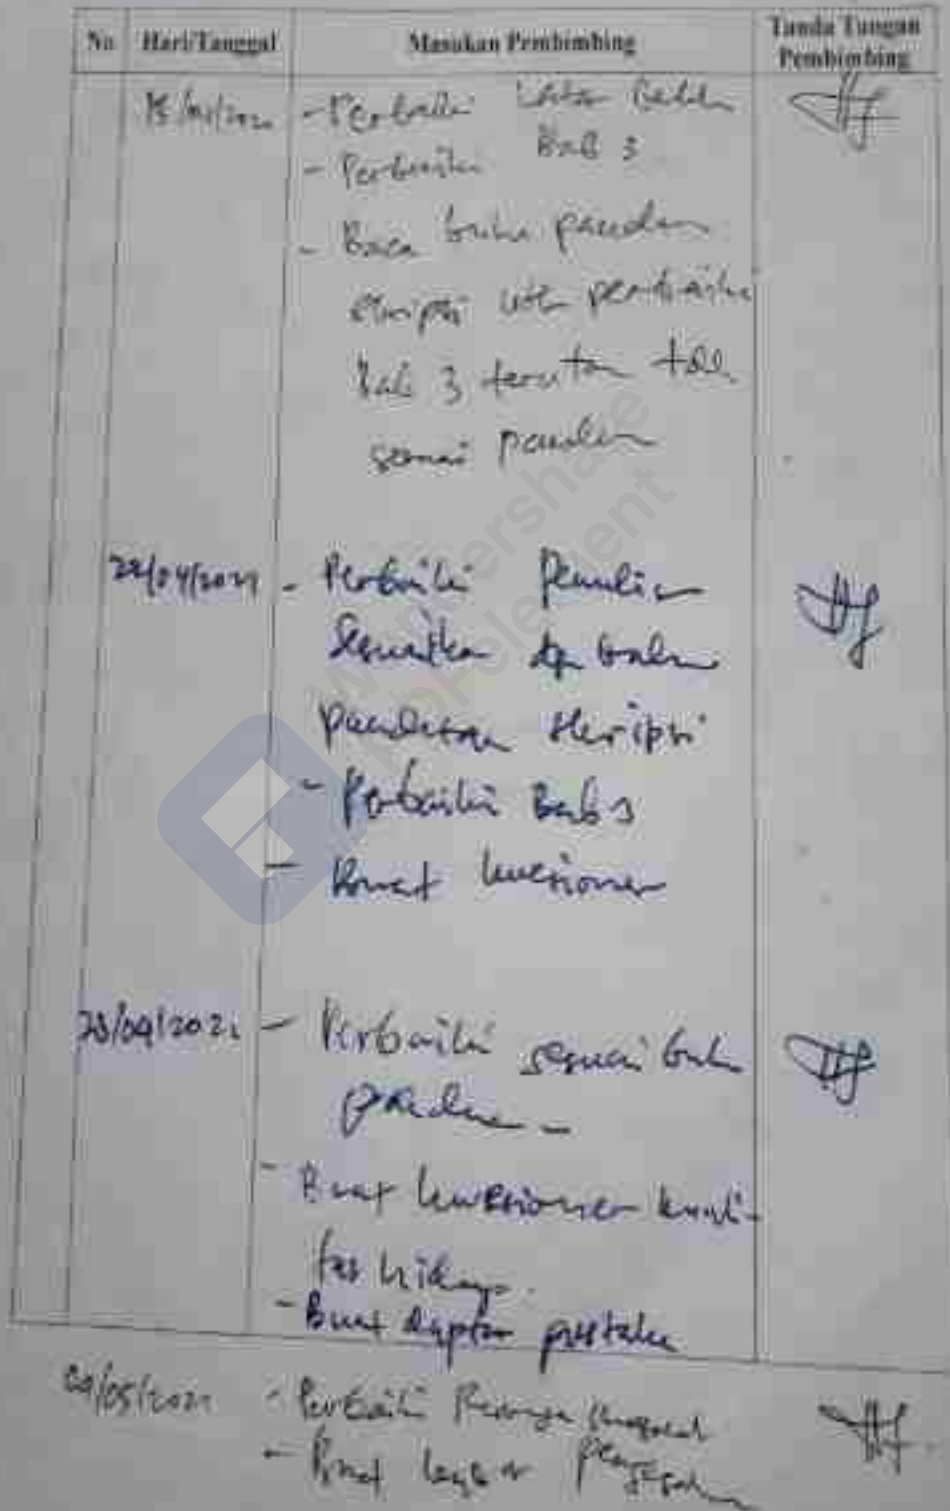 No Hari/Tanggal Masukan Pembimbing Tanda Tangan Pembimbing
- Perbaiki Latar
- Perbaiki Bab 3
- Baca buku panduan
skripsi utk perbaiki
Bab 3
sesuai panduan
22/04/2021 - Perbaiki Penulisan
Sesuaikan dgn buku
panduan skripsi
- Perbaiki Bab 3
- Buat kuesioner
28/04/2021 - Perbaiki sesuai buku
panduan -
- Buat kuesioner kuali-
tas hidup.
- Buat daptar pustaka
/05/2021 - Perbaiki
- Buat
Wondershare
PDFelement